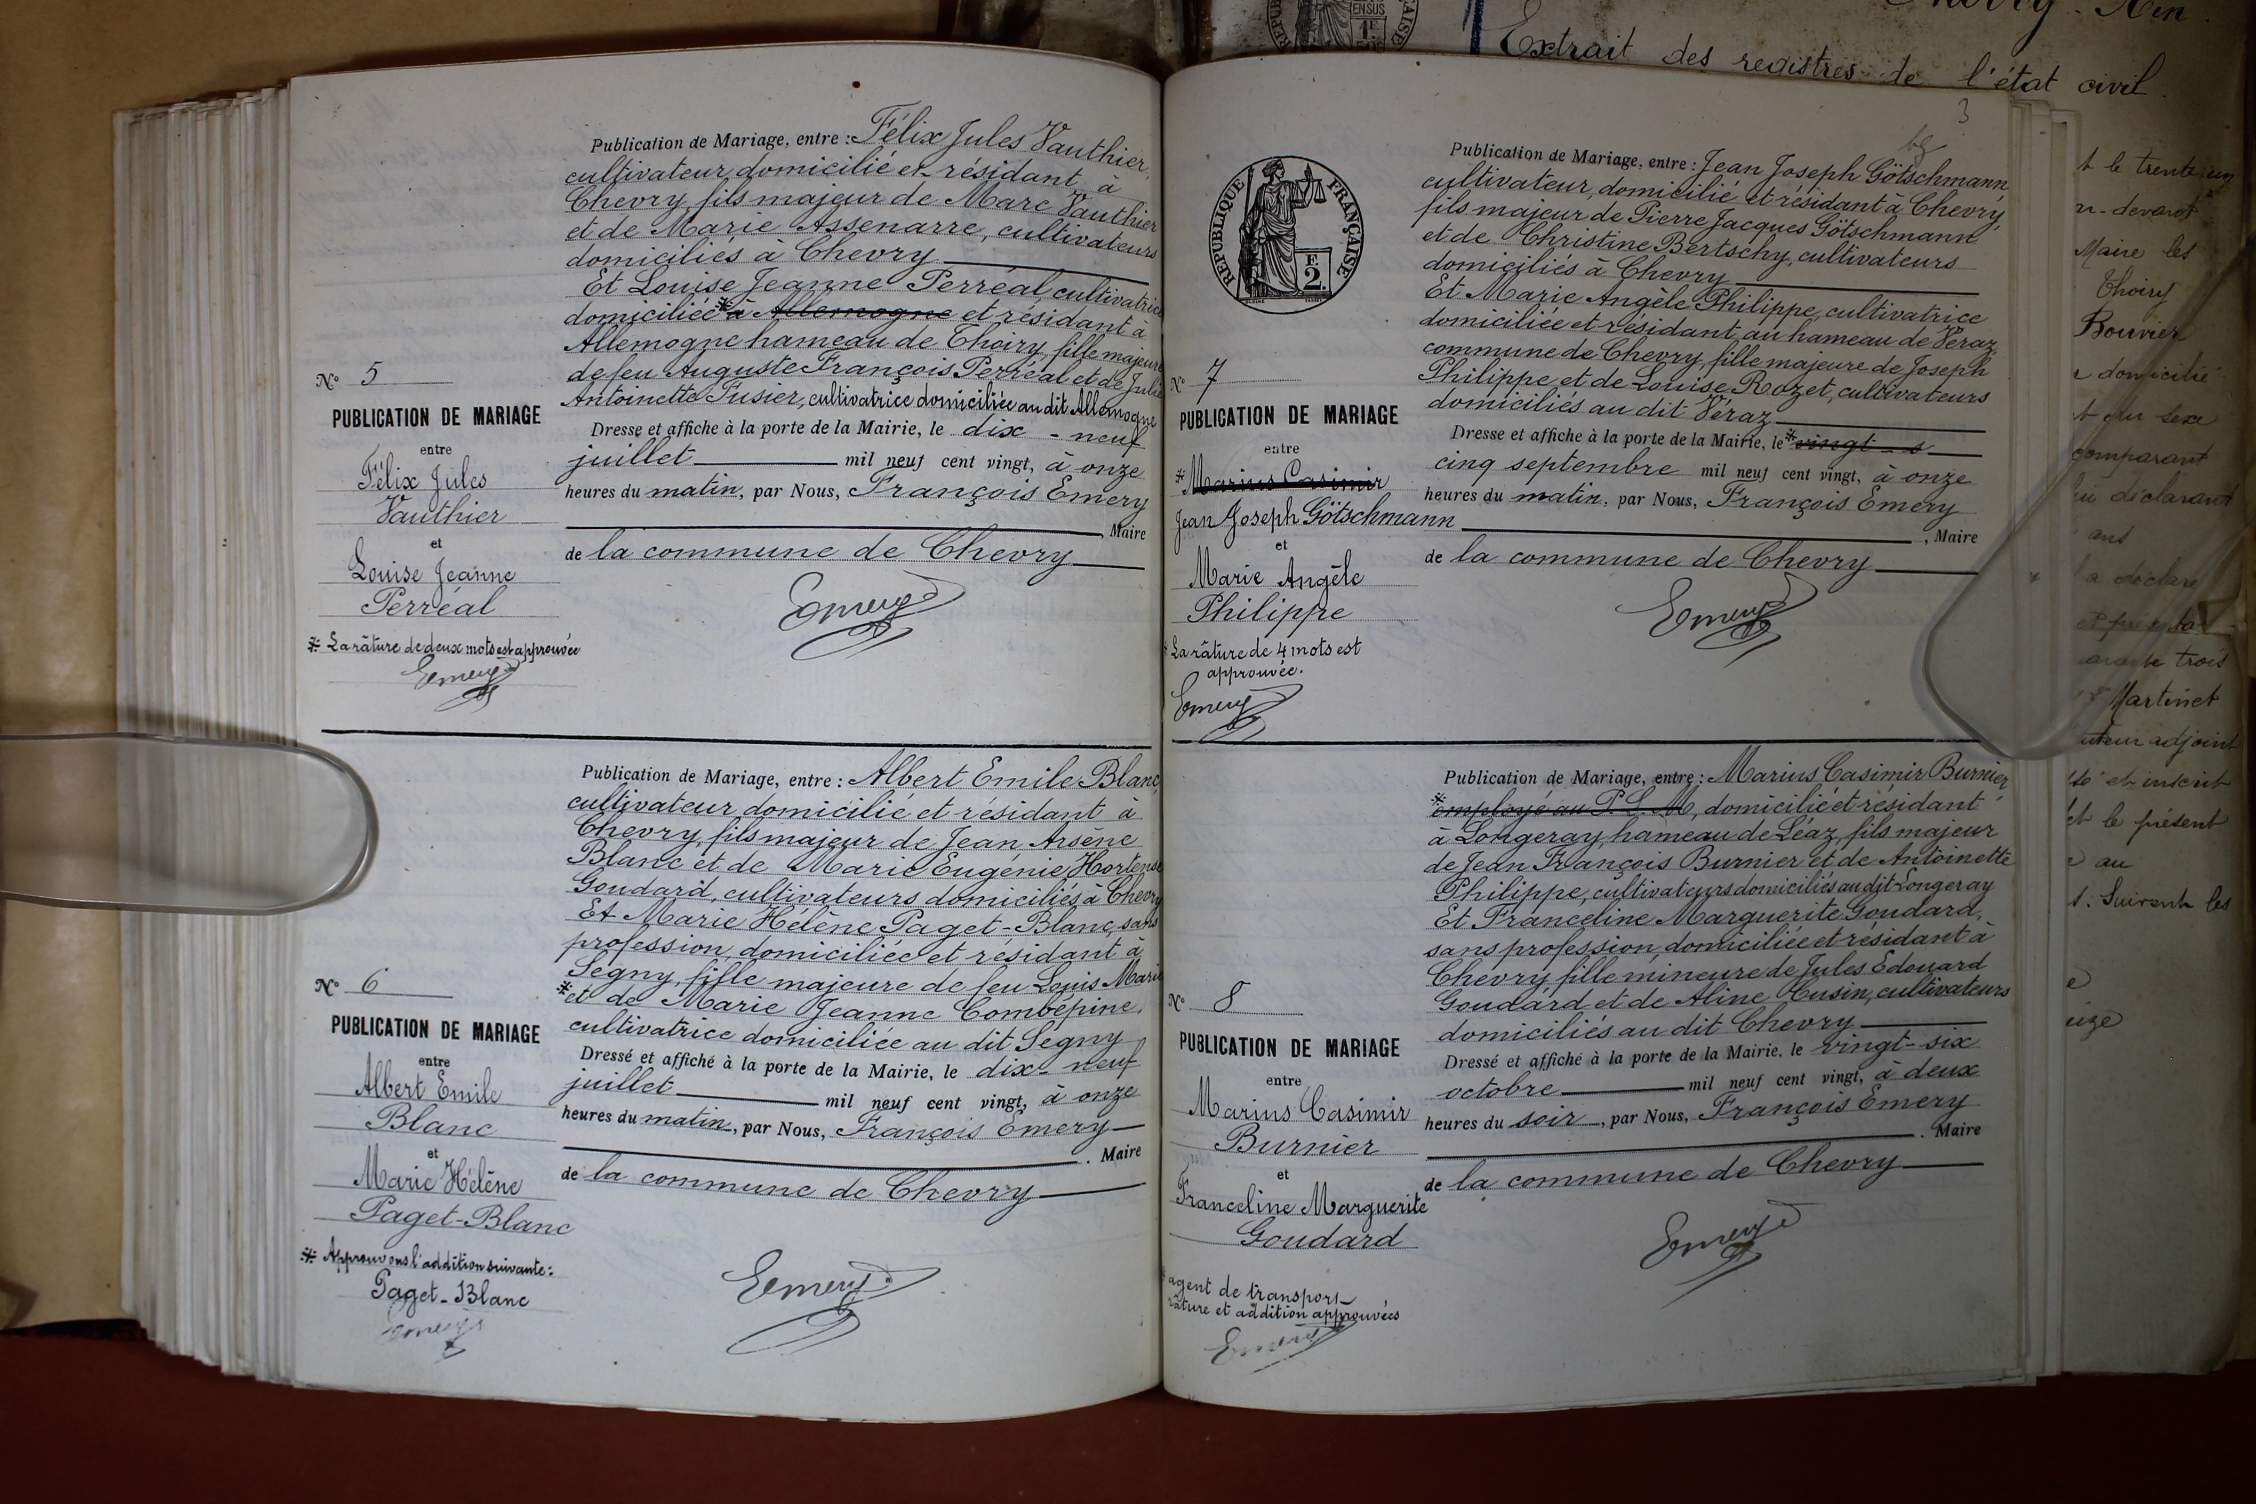 Chevry. Ain.
Extrait des registres de l'état civil.
N° 5
PUBLICATION DE MARIAGE
entre
Félix Jules
Vauthier
et
Louise Jeanne
Perréal
* La râture de deux mots est approuvée
Emery
Publication de Mariage, entre : Félix Jules Vauthier,
cultivateur, domicilié et résidant à
Chevry, fils majeur de Marc Vauthier
et de Marie Assenarre, cultivateurs
domiciliés à Chevry
Et Louise Jeanne Perréal, cultivatrice
domiciliée * à Allemogne et résidant à
Allemogne hameau de Thoiry, fille majeure
de feu Auguste François Perréal et de Julie
Antoinette Fusier, cultivatrice domiciliée au dit Allemogne
Dressé et affiché à la porte de la Mairie, le dix-neuf
juillet mil neuf cent vingt, à onze
heures du matin, par Nous, François Emery
, Maire
de la commune de Chevry
Emery
N° 6
PUBLICATION DE MARIAGE
entre
Albert Emile
Blanc
et
Marie Hélène
Paget-Blanc
* Approuvons l'addition suivante :
Paget-Blanc
Emery
Publication de Mariage, entre : Albert Emile Blanc,
cultivateur domicilié et résidant à
Chevry, fils majeur de Jean Arsène
Blanc et de Marie Eugénie Hortense
Goudard, cultivateurs domiciliés à Chevry
Et Marie Hélène Paget-Blanc, sans
profession, domiciliée et résidant à
Segny, fille majeure de feu Louis Marie
* et de Marie Jeanne Combépine,
cultivatrice domiciliée au dit Segny
Dressé et affiché à la porte de la Mairie, le dix-neuf
juillet mil neuf cent vingt, à onze
heures du matin, par Nous, François Emery
, Maire
de la commune de Chevry
Emery
3
RÉPUBLIQUE FRANÇAISE
2 F.
N° 7
PUBLICATION DE MARIAGE
entre
* Marius Casimir
Jean Joseph Götschmann
et
Marie Angèle
Philippe
* La râture de 4 mots est
approuvée.
Emery
Publication de Mariage, entre : Jean Joseph Götschmann,
cultivateur, domicilié et résidant à Chevry,
fils majeur de Pierre Jacques Götschmann
et de Christine Bertschy, cultivateurs
domiciliés à Chevry
Et Marie Angèle Philippe, cultivatrice
domiciliée et résidant au hameau de Véraz,
commune de Chevry, fille majeure de Joseph
Philippe et de Louise Rozet, cultivateurs
domiciliés au dit Véraz
Dressé et affiché à la porte de la Mairie, le * vingt-s
cinq septembre mil neuf cent vingt, à onze
heures du matin, par Nous, François Emery
, Maire
de la commune de Chevry
Emery
N° 8
PUBLICATION DE MARIAGE
entre
Marius Casimir
Burnier
et
Franceline Marguerite
Goudard
* agent de transport
râture et addition approuvées
Emery
Publication de Mariage, entre : Marius Casimir Burnier
* employé au P. L. M, domicilié et résidant
à Longeray, hameau de Léaz, fils majeur
de Jean François Burnier et de Antoinette
Philippe, cultivateurs domiciliés au dit Longeray
Et Franceline Marguerite Goudard,
sans profession, domiciliée et résidant à
Chevry, fille mineure de Jules Edouard
Goudard et de Aline Cusin, cultivateurs
domiciliés au dit Chevry
Dressé et affiché à la porte de la Mairie, le vingt-six
octobre mil neuf cent vingt, à deux
heures du soir, par Nous, François Emery
, Maire
de la commune de Chevry
Emery
t le trente un
devant
Maire les
Thoiry
Bouvier
domicilié
du sexe
comparant
déclarant
ans
a déclaré
trois
Martinet
adjoint
et inscrit
et le présent
au
Suivent les